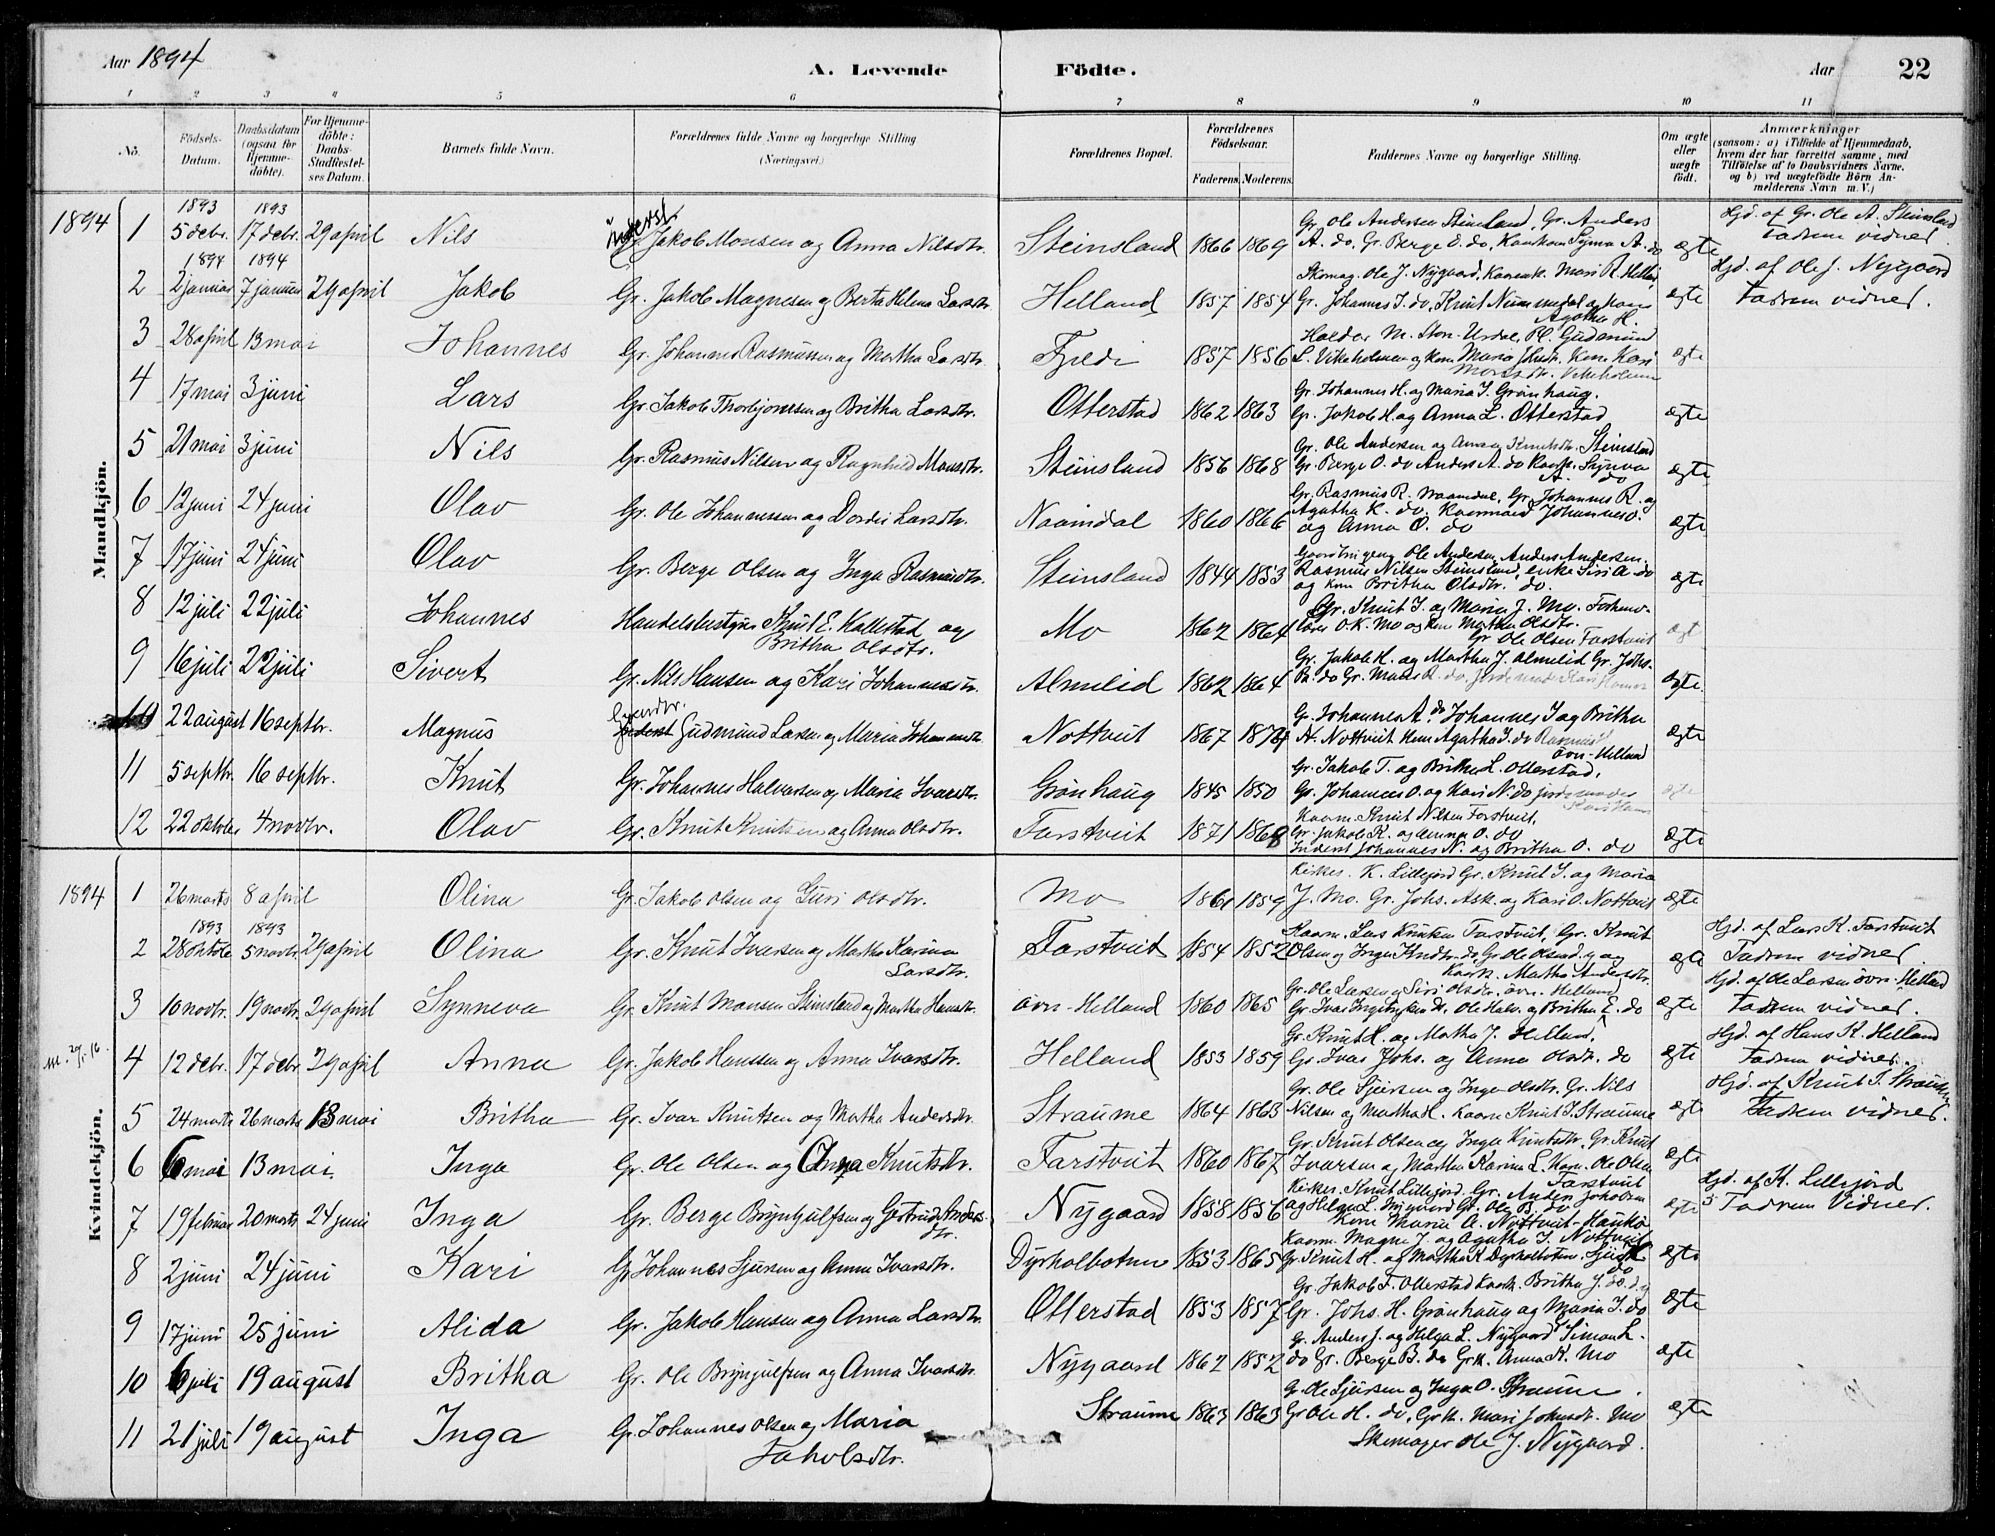 Aar 1894 A. Levende Födte. Aar 22
1 2 3 4 5 6 7 8 9 10 11
No. Födsels-Datum. Daabsdatum (ogsaa for Hjemme-döbte). For Hjemme-döbte: Daabs-Stadfæstel-ses Datum. Barnets fulde Navn. Forældrenes fulde Navne og borgerlige Stilling (Næringsvei.) Forældrenes Bopæl. Forældrenes Födselsaar. Faderens. Moderens. Faddernes Navne og borgerlige Stilling. Om ægte eller uægte födt. Anmærkninger (saasom: a) i Tilfælde af Hjemmedaab, hvem der har forrettet samme, med Tilföielse af to Daabsvidners Navne. og b) ved uægtefödte Börn An-melderens Navn m. V.)
Mandkjön.
1894 1 1893 5 debr. 1893 17 debr. 29 april Nils Inderst Jakob Monsen og Anna Nilsdtr. Steinsland 1866 1869 Gr. Ole Andersen Steinsland, Gr. Anders A. do, Gr. Berge O. do, Synva A. do ægte Hjd. af Gr. Ole A. Steinsland Fadrene vidner.
2 1894 2 januar 1894 7 januar 29 april Jakob Gr. Jakob Magnesen og Berta Helena Larsdtr. Helland 1857 1854 Skomag. Ole J. Nygaard, Mari R. Helland Gr. Johannes I. do, Knut Nummedal og kone Agatha H. ægte Hjd. af Ole J. Nygaard Fadrene vidner.
3 28 april 13 mai Johannes Gr. Johannes Rasmussen og Martha Larsdtr. 1857 1856 ægte
4 17 mai 3 juni Lars Gr. Jakob Thorbjørnsen og Britha Larsdtr. Otterstad 1862 1863 Gr. Johannes H. og Maria I. Grønhaug. Gr. Jakob H. og Anna L. Otterstad ægte
5 21 mai 3 juni Nils Gr. Rasmus Nilsen og Ragnhild Monsdtr. Steinsland 1856 1868 Gr. Ole Andersen og Anna Knutsdtr. Steinsland Gr. Berge O. do Anders A. do Synva A. do ægte
6 12 juni 24 juni Olav Gr. Ole Johannessen og Dordei Larsdtr. Naamdal 1860 1866 Gr. Rasmus R. Naamdal, Gr. Johannes R. og Agatha K. do. Johannes O. og Anna O. do ægte
7 17 juni 24 juni Olav Gr. Berge Olsen og Inga Rasmusdtr. Steinsland 1844 1853 Ole Andersen, Anders Andersen, Rasmus Nilsen Steinsland, enke Siri A. do og kone Britha Olsdtr. do. ægte
8 12 juli 22 juli Johannes Handelsbestyrer Knut E. Kallestad og Britha Olsdtr. Mo 1862 1864 Gr. Knut I. og Maria J. Mo. O. K. Mo og kone Martha Olsdtr. Gr. Ole Olsen Farstveit ægt
9 16 juli 22 juli Sivert Gr. Nils Hansen og Kari Johannesdtr. Almelid 1862 1864 Gr. Jakob H. og Martha J. Almelid Gr. Johs. R. do Gr. Mons R. do, Jordemoder Kari ægte
10 22 august 16 septbr. Magnus Inderst Gudmund Larsen og Maria Johannesdtr. Nottveit 1867 Gr. Johannes A. do Johannes I. og Britha N. Nottveit Agatha I. do Rasmus Øvn-Helland ægte
11 5 septbr. 16 septbr. Knut Gr. Johannes Halvorsen og Maria Ivarsdtr. Grønhaug 1845 1850 Gr. Jakob T. og Britha L. Otterstad, Gr. Johannes O. og Kari N. do jordemoder ægte
12 22 oktober 4 novbr. Olav Gr. Knut Knutsen og Anna Olsdtr. Farstveit 1871 1868 Knut Nilsen Farstveit, Gr. Jakob K. og Anna O. do Inderst Johannes N. og Britha O. do ægte
Kvindekjön.
1894 1 26 marts 8 april Olina Gr. Jakob Olsen og Guri Olsdtr. Mo 1861 1859 Kirkes. K. Lillejord Gr. Knut I. og Maria J. Mo. Gr. Johs. Ask. og Kari O. Nottveit ægte
2 1893 28 oktob 1893 5 novbr 29 april Olina Gr. Knut Ivarsen og Martha Karina Larsdtr. Farstveit 1854 1852 Lars Knutsen Farstveit, Gr. Knut Olsen og Inga Knutsdtr. do, Gr. Ole Olsen do og Martha Andersdtr. ægte Hjd. af Lars K. Farstveit Fadrene vidner.
3 10 novbr. 19 novbr. 29 april Synneva Gr. Knut Monsen Steinsland og Martha Hansdtr. øvn-Helland 1860 1865 Gr. Ole Larsen og Siri Olsdtr. øvn. Helland Gr. Ivar Ole Halv. og Britha E. do ægte Hjd. af Ole Larsen øvn-Helland Fadrene vidner.
4 12 debr. 17 debr 29 april Anna Gr. Jakob Hanssen og Anna Ivarsdtr. Helland 1853 1859 Gr. Knut H. og Martha J. Helland, Gr. Ivar Johs. og Anna Olsdtr. do ægte Hjd. af Hans K. Helland Fadrene vidner.
5 24 marts 26 marts 13 mai Britha Gr. Ivar Knutsen og Martha Andersdtr. Straume 1864 1863 Gr. Ole Sjursen og Inga Olsdtr. Gr. Nils Nilsen og Martha H. Knut I. Straume ægte Hjd. af Knut I. Straume Fadrene vidner.
6 6 mai 13 mai. Inga Gr. Ole Olsen og Anna Knutsdtr. Farstveit 1860 1867 Gr. Knut Olsen og Inga Knutsdtr. Gr. Knut Ivarsen og Martha Karina L. Ole Olsen Farstveit ægte
7 19 februar 20 marts 24 juni Inga Gr. Berge Brynjulfsen og Gertrud Andersdtr. Nygaard 1858 1856 Kirkes. Knut Lillejord. Gr. Anders Jakobsen og Helga L. Nygaard Gr. Ole B. do Kone Maria A. Nottveit-Haukås ægte Hjd. af K. Lillejord Fadrene Vidner.
8 2 juni 24 juni Kari Gr. Johannes Sjursen og Anna Ivarsdtr. Dyrholbotnen 1853 1865 Magne J. og Agatha I. Nottveit Gr. Knut H. og Martha K. Dyrholbotnen do ægte
9 17 juni 25 juni Alida Gr. Jakob Hansen og Anna Larsdtr. Otterstad 1853 1857 Gr. Jakob T. Otterstad Britha J. do. Gr. Johs. H. Grønhaug og Maria I. do ægte
10 6 juli 19 august Britha Gr. Ole Brynjulfsen og Anna Ivarsdtr. Nygaard 1862 1852 Gr. Anders J. og Helga L. Nygaard Simon L. do Gr. Berge B. do Grk. Anna K. Mo ægte
11 21 juli 19 august Inga Gr. Johannes Olsen og Maria Jakobsdtr. Straume 1863 1863 Gr. Ole Sjursen og Inga O. Straume. Gr. Ole H. do, Grk. Mari Mo Skomager Ole J. Nygaard. ægte